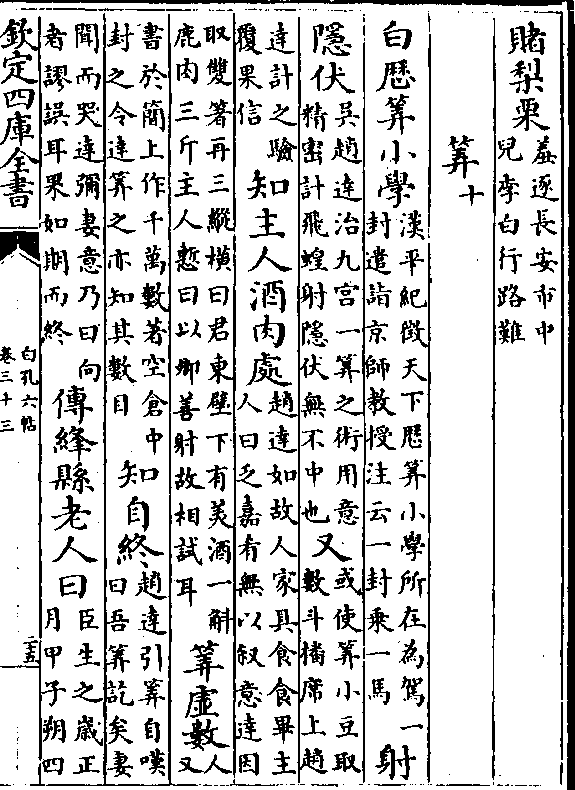 賭梨栗羞逐長安市中
兒李白行路難
筭十
白歴筭小學漢平紀徵天下歴筭小學所在為駕一
封遣詣京師教授注云一封乘一馬射
隱伏吳趙達治九宫一算之術用意
精密計飛蝗射隱伏無不中也又或使筭小豆取
數斗播席上趙
達計之驗
覆果信知主人酒肉處趙達如故人家具食食畢主
人曰乏嘉有無以叙意達因
取雙箸再三縱橫曰君東壁下有美酒一斛
鹿肉三斤主人慙曰以卿善射故相試耳筭虚數人
又
書於簡上作千萬數著空倉中
封之令達筭之亦知其數目知自終趙達引筭自嘆
曰吾筭訖矣妻
聞而哭達彌妻意乃曰向
者謬誤耳果如期而終傳絳縣老人曰臣生之嵗正
月甲子朔四
欽定四庫全書
白孔六帖
卷三十三
二五